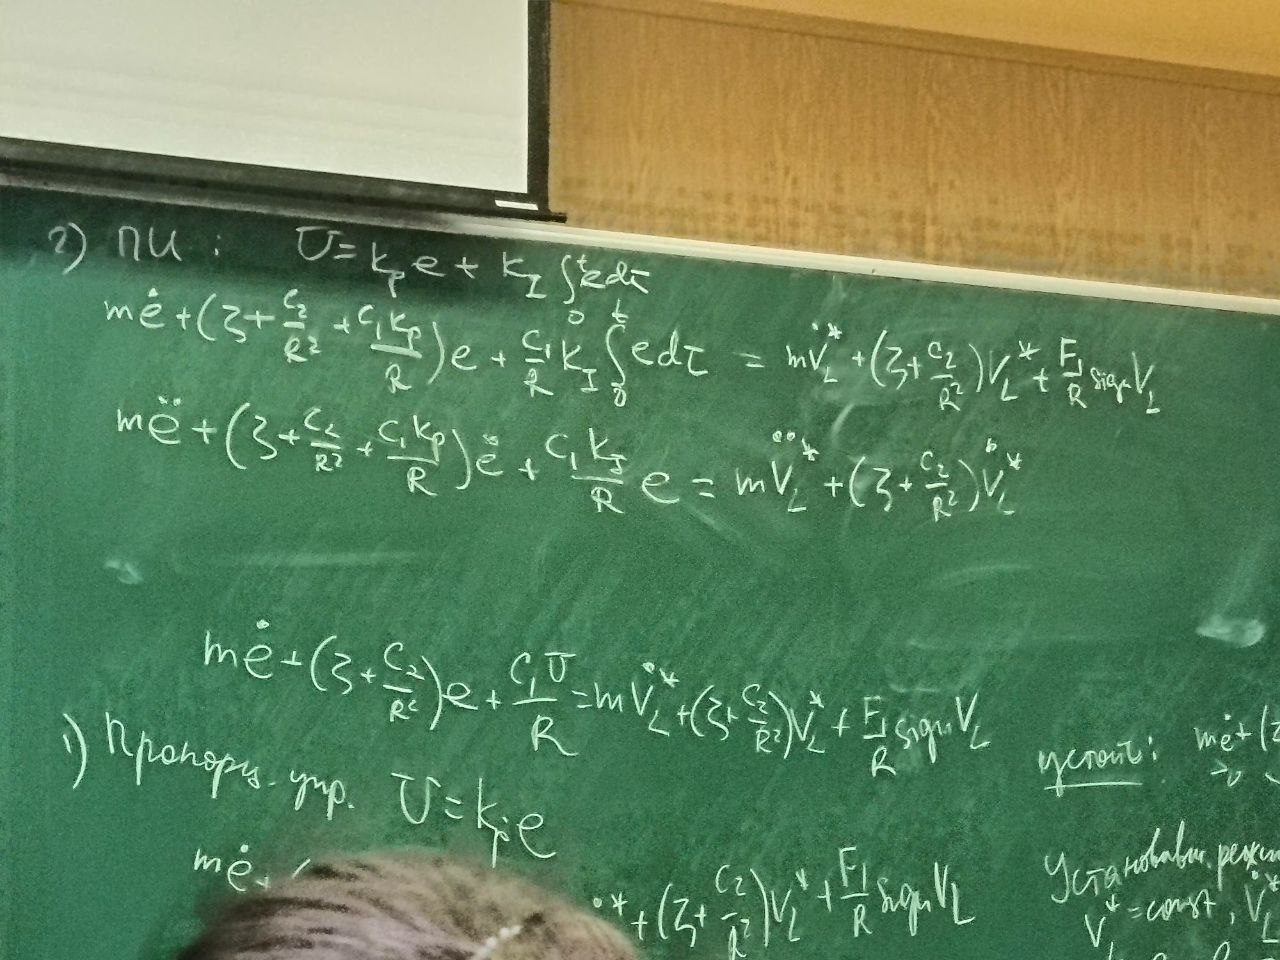 2) ПИ : U = k_p e + k_I ∫_0^t e dτ
mė + (ζ + c_2/R² + c_1 k_p/R) e + c_1/R k_I ∫_0^t e dτ = m V̇_L^* + (ζ + c_2/R²) V_L^* + F_1/R sign V_L
më + (ζ + c_2/R² + c_1 k_p/R) ė + c_1 k_I/R e = m V̈_L^* + (ζ + c_2/R²) V̇_L^*
mė + (ζ + c_2/R²) e + c_1 U/R = m V̇_L^* + (ζ + c_2/R²) V_L^* + F_1/R sign V_L
1) Пропорц. упр. U = k_p e
mė + (
^* + (ζ + c_2/R²) V_L^* + F_1/R sign V_L
устойч: mė + (ζ
Установивш. режи
V_L^* = const, V̇_L^*